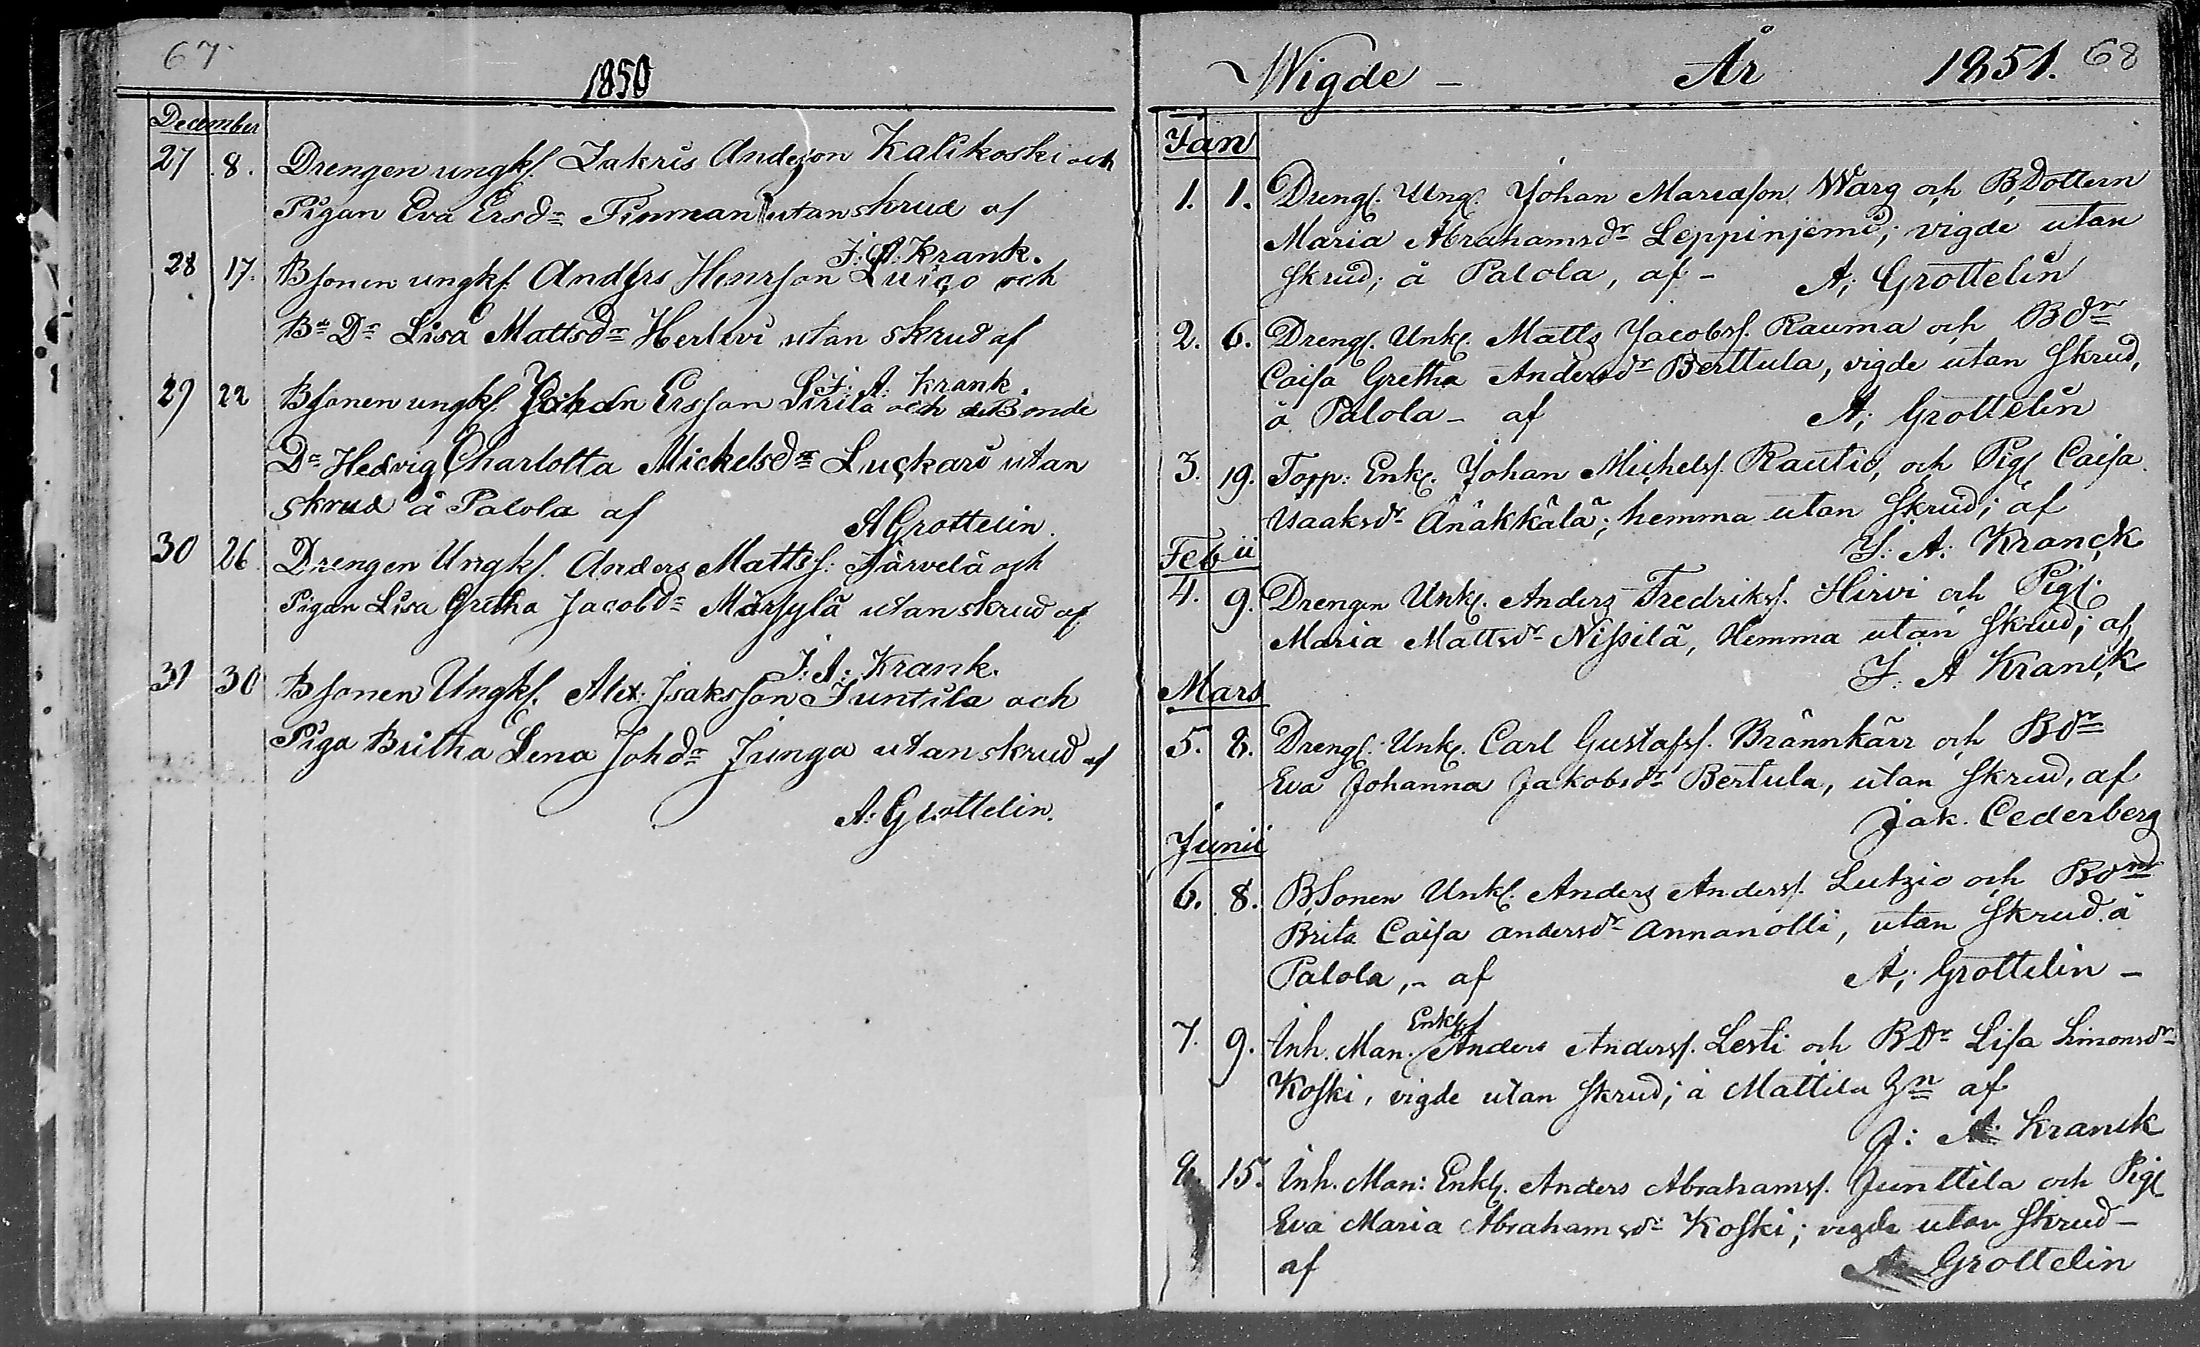 67
1850
December
27 8. Drengen ungkf. Zakris Andersson Kalikoski och
Pigan Eva Ersdr Finman utan skrud af
J: A: Krank.
28 17. Bsonen ungkf. Anders Henrsson Luico och
Be Dr Lisa Mattsdr Herlevi utan skrud af
J: A: Krank.
29 22 Bsonen ungkf. Johan Ersson Sirila och Bonde
Dr Hedvig Charlotta Mickelsdr Luckari utan
skrud å Palola af
A Grottelin.
30 26. Drengen Ungkf. Anders Mattsf: Järvelä och
Pigan Lisa Gretha Jacobdr Märsylä utan skrud af
J: A: Krank.
31 30 Bsonen Ungkf. Alex: Isaksson Juntila och
Piga Britha Lena Johdr Junga utan skrud af
A: Grottelin.
Wigde - År 1851. 68
Jan
1. 1. Drengf. Ungf. Johan Mariasson Warg och B,Dottern
Maria Abrahamsdr Leppinjemi; vigde utan
skrud; å Palola, af - A; Grottelin
2. 6. Drengf. Unkf. Matts Jacobsf. Rauma och Bdrn
Caisa Gretha Andersdr Berttula, vigde utan skrud,
å Palola - af A; Grottelin
3. 19. Torp: Enkf. Johan Michelsf. Rautio, och Pigf Caisa
Isaaksdr Änäkkälä; hemma utan skrud; af
J: A: Kranck
Febii
4. 9. Drengen Unkf. Anders Fredriksf. Hirvi och Pigf.
Maria Mattsdr Nissilä, Hemma utan skrud; af
J: A Kranck
Mars
5. 8. Drengf. Unkf. Carl Gustafsf. Brännkärr och Bdrn
Eva Johanna Jakobsdr Bertula, utan skrud, af
Jak. Cederberg
Junii
6. 8. B,Sonen Unkf. Anders Andersf. Lutzio och Bdrn
Brita Caisa andersdr Annanolli, utan skrud å
Palola, - af A; Grottelin -
7. 9. Inh. Man. Enkf Anders Andersf. Lesti och BDr Lisa Simonsdr
Koski, vigde utan skrud; å Mattila af
J: A: Kranck
8. 15. Inh. Man: Enkf. Anders Abrahamsf. Junttila och Pigf
Eva Maria Abrahamsdr Koski; vigde utan skrud -
af A. Grottelin